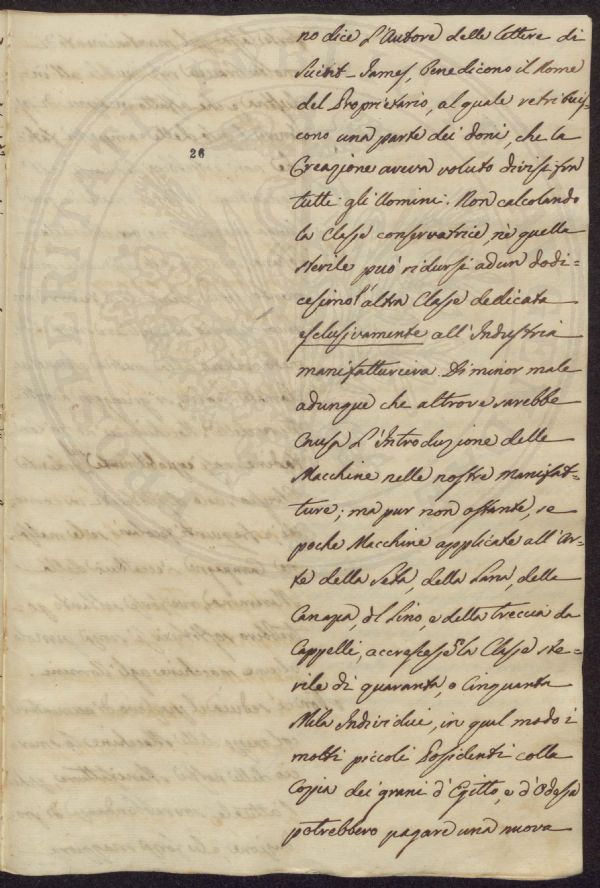 26
no dice l'Autore delle lettere di
Suint-James, benedicono il Nome
del Proprietario, al quale retribuis-
cono una parte dei doni, che la
Creazione aveva voluto divisi fra
tutti gli Uomini. Non calcolando
la Classe conservatrice, nè quella
sterile può ridursi ad un dodi=
cesimo l'altra Classe dedicata
esclusivamente all'Industria
manifatturiera. Di minor male
adunque che altrove sarebbe
Causa l'Introduzione delle
Macchine nelle nostre Manifat=
ture; ma pur non ostante, se
poche Macchine applicate all'Ar=
te della Seta, della Lana, della
Canapa, del Lino, e della treccia da
Cappelli, accrescesse la Classe ste=
rile di quaranta, o Cinquanta
Mila Individui, in qual modo i
molti piccoli Possidenti colla
Copia dei grani d'Egitto, e d'Odessa
potrebbero pagare una nuova